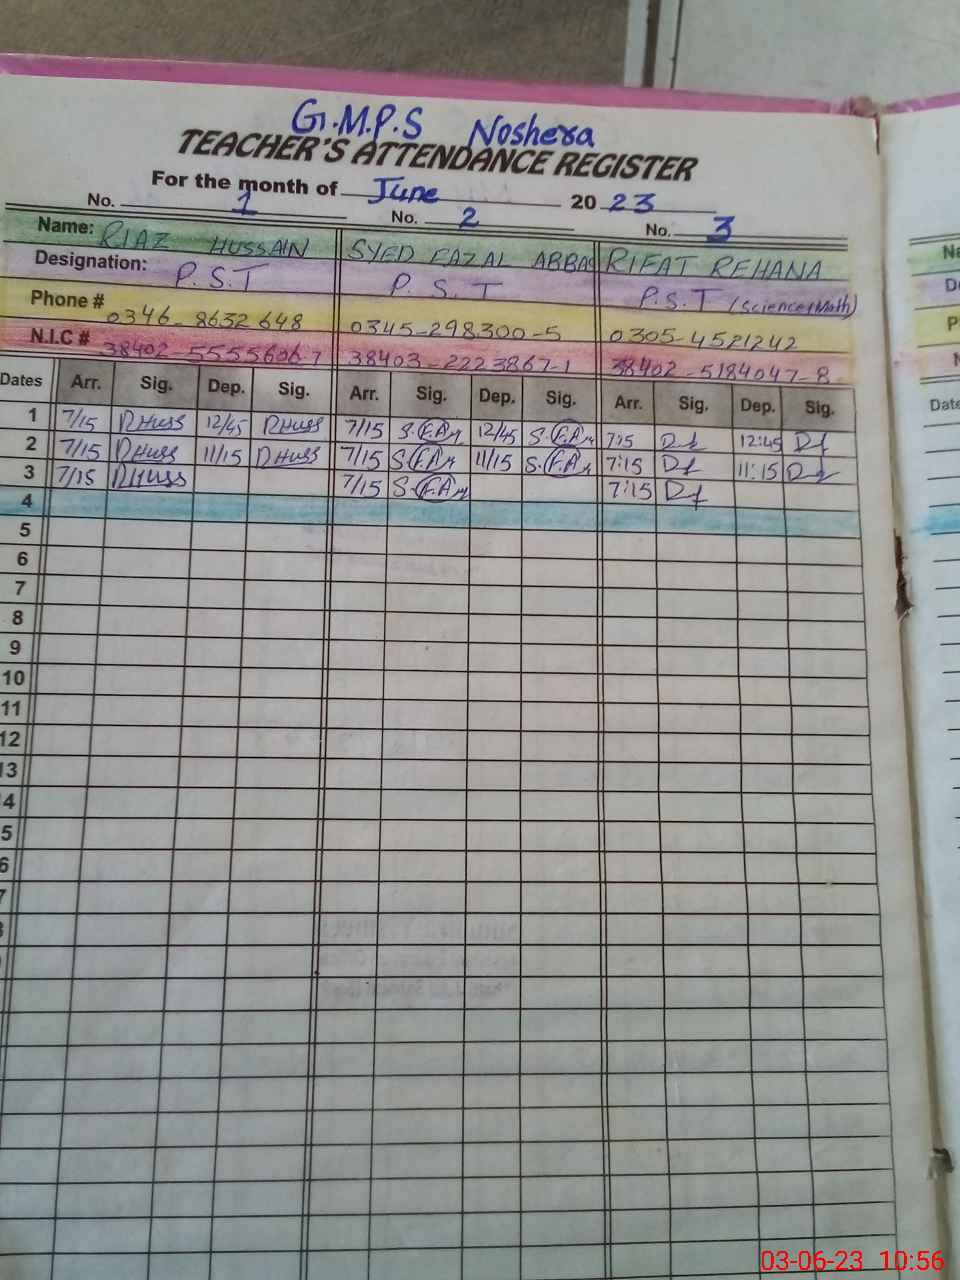 G.M.P.S Noshera
TEACHER'S ATTENDANCE REGISTER
For the month of June 2023
No. 1 No. 2 No. 3
Name: RIAZ HUSSAIN SYED FAZAL ABBAS RIFAT REHANA
Designation: P.S.T P.S.T P.S.T (Science+Math)
Phone # 0346-8632648 0345-298300-5 0305-4521242
N.I.C # 38402-5555606-7 38403-2223867-1 38402-5184047-8
Dates Arr. Sig. Dep. Sig. Arr. Sig. Dep. Sig. Arr. Sig. Dep. Sig.
1 7/15 RHuss 12/45 RHuss 7/15 12/45 7:15 12:45
2 7/15 RHuss 11/15 RHuss 7/15 11/15 7:15 11:15
3 7/15 RHuss 7/15 7:15
4
5
6
7
8
9
10
11
12
13
4
5
6
7
Date
03-06-23 10:56